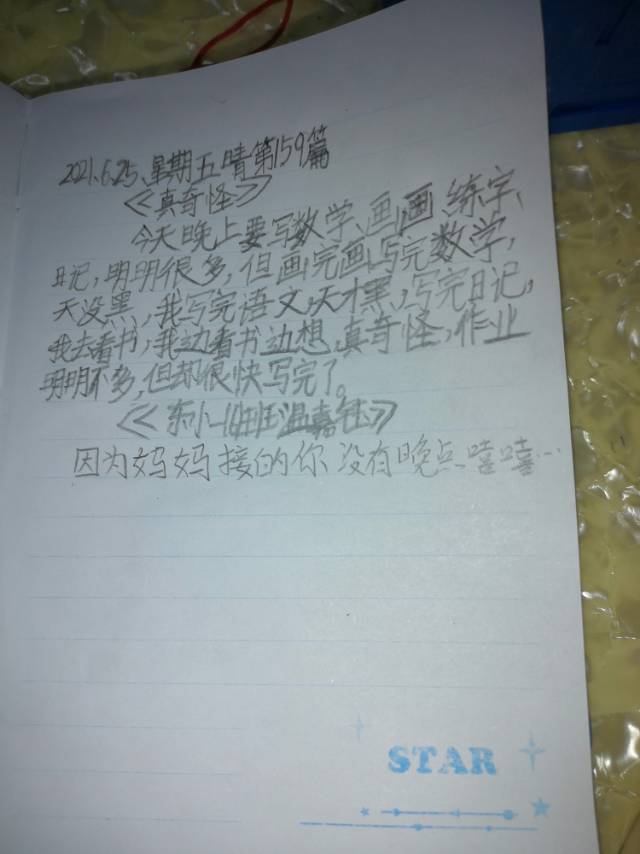 2021.6.25、星期五 晴 第159篇
《真奇怪》
今天晚上要写数学、画画、练字、
日记，明明很多，但画完画，写完数学，
天没黑，我写完语文，天才黑，写完日记，
我去看书，我边看书边想，真奇怪，作业
明明不多，但却很快写完了。
《东小一4班温嘉钰》
因为妈妈接的你没有晚点嘻嘻…
STAR